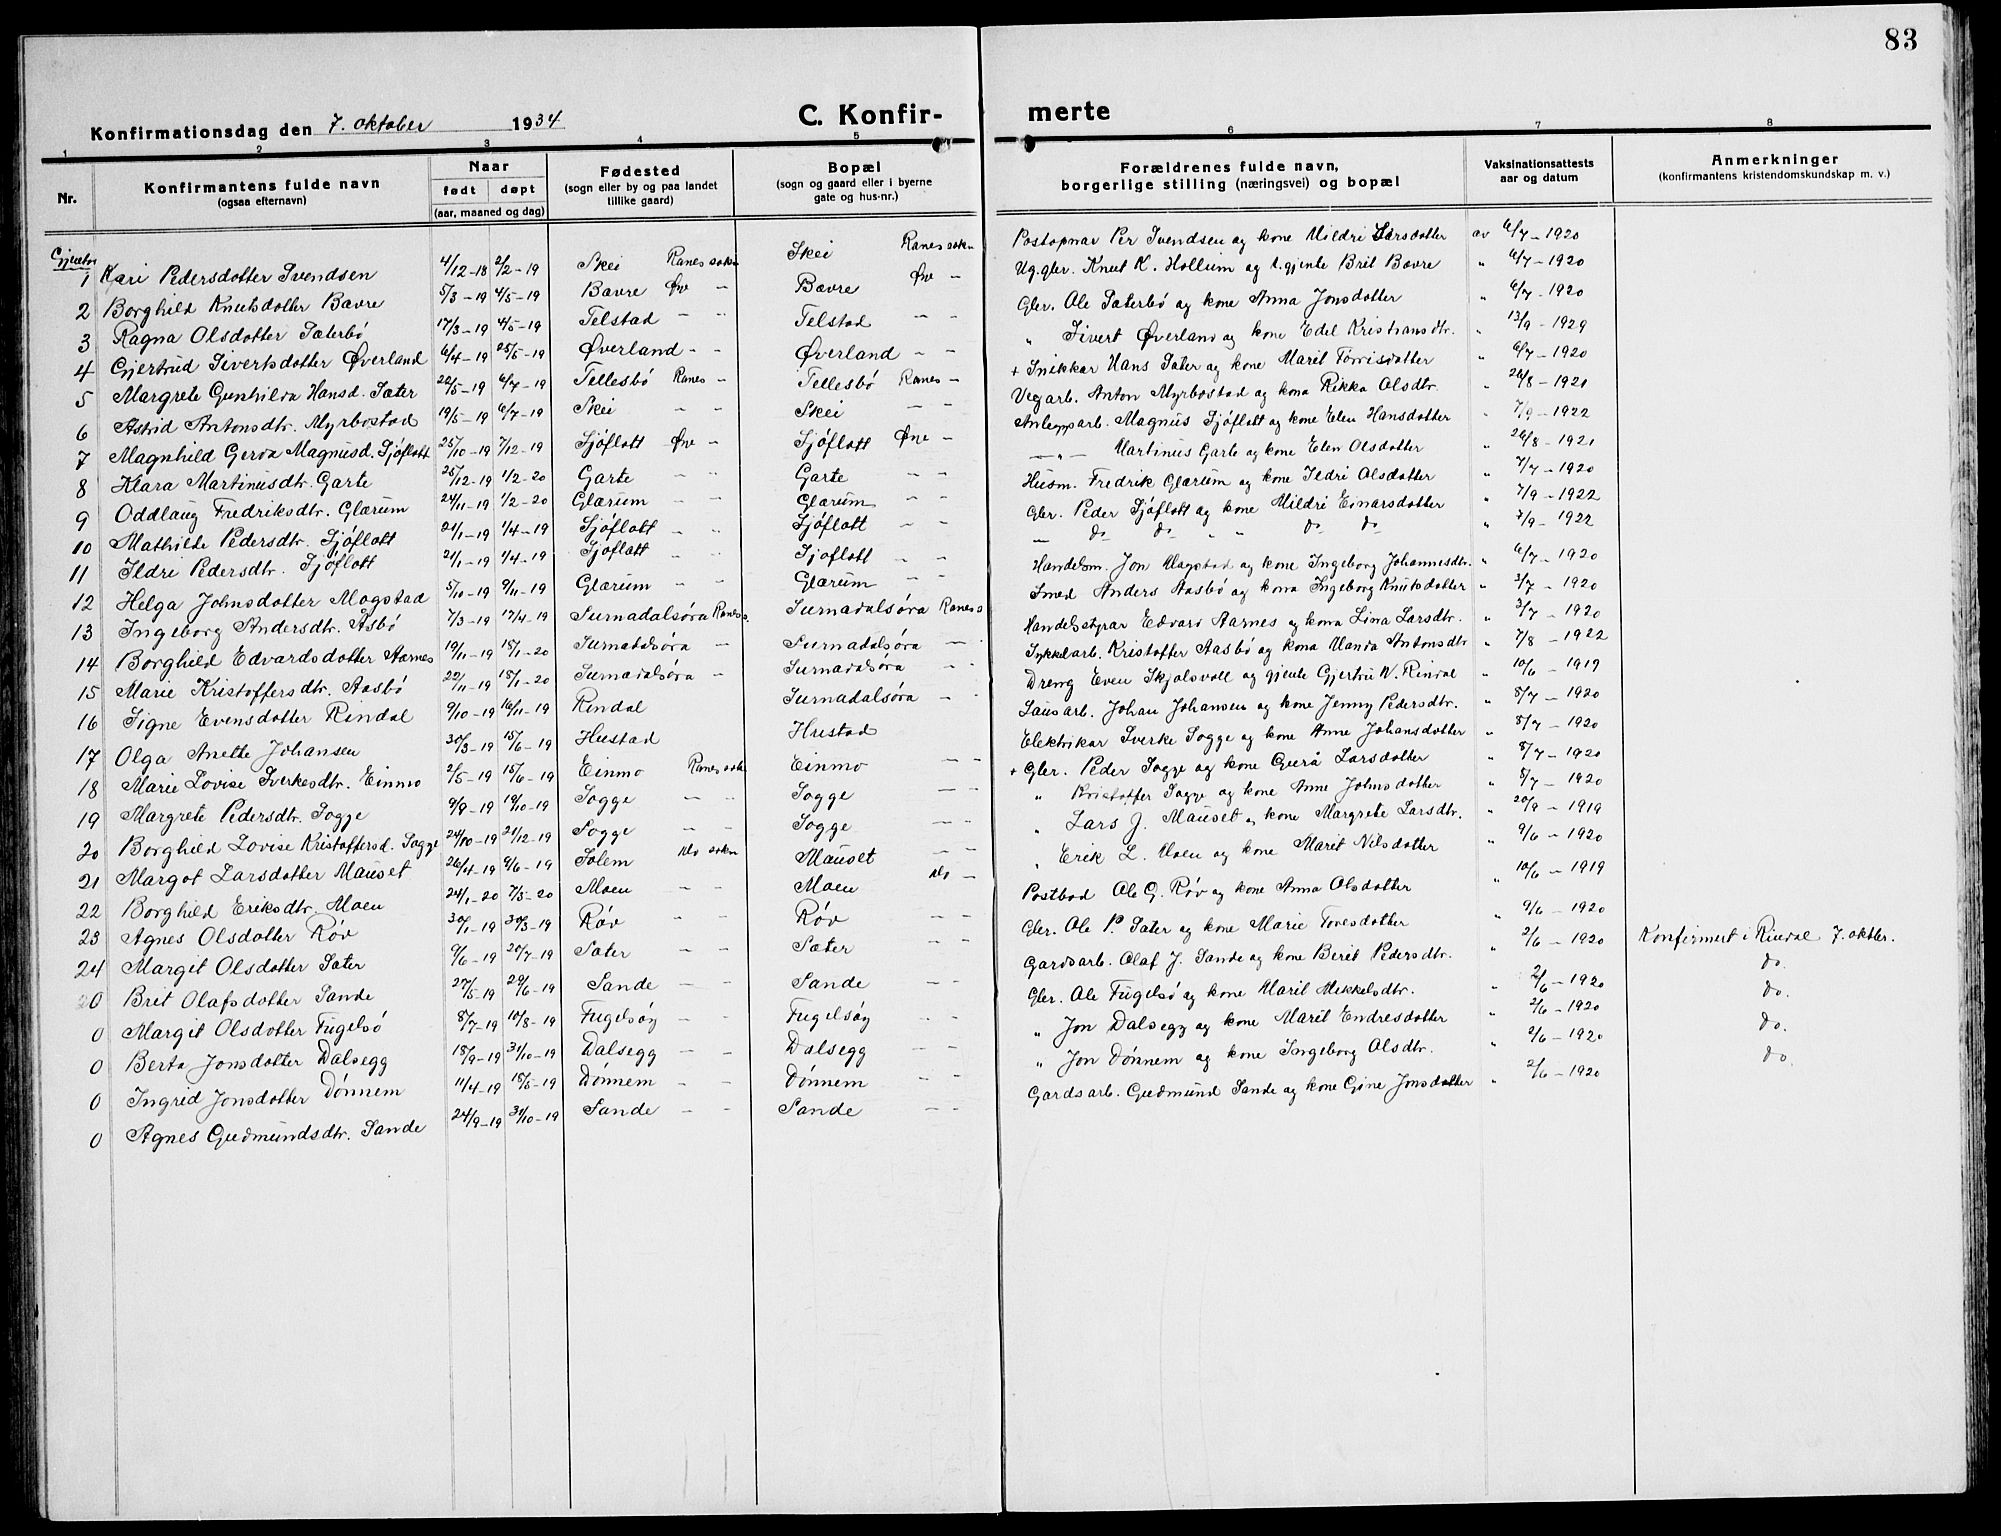 83
Konfirmationsdag den 7. oktober 1934 C. Konfir- merte
1 2 3 4 5 6 7 8
Nr. Konfirmantens fulde navn (ogsaa efternavn) Naar født døpt (aar, maaned og dag) Fødested (sogn eller by og paa landet tillike gaard) Bopæl (sogn og gaard eller i byerne gate og hus-nr.) Forældrenes fulde navn, borgerlige stilling (næringsvei) og bopæl Vaksinationsattests aar og datum Anmerkninger (konfirmantens kristendomskundskap m. v.)
1 Kari Pedersdotter Svendsen 4/12-18 2/2-19 Skei Ranes sokn Skei Ranes sokn Postopnar Per Svendsen og kone Mildri Larsdotter av 6/7-1920
2 Borghild Knutsdotter Bævre 5/3-19 4/5-19 Bævre Øve - Bævre Øve - Ug.gbr. Knut K. Hollum og t.gjente Brit Bævre " 6/7-1920
3 Ragna Olsdotter Sæterbø 17/3-19 4/5-19 Telstad - - Telstad - - Gbr. Ole Sæterbø og kone Anna Jonsdotter " 6/7-1920
4 Gjertrud Sivertsdotter Øverland 6/4-19 25/5-19 Øverland - - Øverland - - " Sivert Øverland og kone Edel Kristiansdtr. " 13/9-1929
5 Margrete Gunhilda Hansd. Sæter 22/5-19 6/7-19 Tellesbø Ranes - Tellesbø Ranes - + Snikkar Hans Sæter og kone Marit Torrisdotter " 6/7-1920
6 Astrid Antonsdtr. Myrbostad 19/5-19 6/7-19 Skei - - Skei - - Vegarb. Anton Myrbostad og kona Rikka Olsdtr. " 26/8-1920
7 Magnhild Gerda Magnusd. Sjøflott 25/10-19 7/12-19 Sjøflott Øve - Sjøflott Øve - Anleggsarb. Magnus Sjøflott og kone Elen Hansdotter " 7/9-1922
8 Klara Martinusdtr. Garte 25/12-19 1/2-20 Garte - - Garte - - - " - Martinus Garte og kone Elen Olsdotter " 26/8-1921
9 Oddlaug Fredriksdtr. Glærum 24/11-19 1/2-20 Glærum - - Glærum - - Husm. Fredrik Glærum og kone Ildri Olsdotter " 7/7-1920
10 Mathilde Pedersdtr. Sjøflott 21/1-19 1/4-19 Sjøflott - - Sjøflott - - Gbr. Peder Sjøflott og kone Mildri Einarsdotter " 7/9-1922
11 Ildri Pedersdtr. Sjøflott 21/1-19 1/4-19 Sjøflott - - Sjøflott - - - do do " " do do " 7/9-1922
12 Helga Johnsdotter Mogstad 5/10-19 9/11-19 Glærum - - Glærum - - Handelsm. Jon Magstad og kone Ingeborg Johannesdtr. " 6/7-1920
13 Ingeborg Andersdtr. Åsbø 7/3-19 17/4-19 Surnadalsøra Ranes s. Surnadalsøra Ranes s Smed Anders Aasbø og kona Ingeborg Knutsdotter " 3/7-1920
14 Borghild Edvardsdotter Aarnes 19/11-19 18/1-20 Surnadalsøra - Surnadalsøra - - Handelsstyrar Edvard Aarnes og kona Lina Larsdtr. " 3/7-1920
15 Marie Kristoffersdtr. Aasbø 22/11-19 18/1-20 Surnadalsøra - Surnadalsøra - - Sykkelarb. Kristoffer Aasbø og kona Manda Antonsdtr " 7/8-1922
16 Signe Evensdotter Rindal 9/10-19 16/11-19 Rindal Surnadalsøra - - Dreng Even Skjølsvoll og gjente Gjertru N. Rindal " 10/6-1919
17 Olga Anette Johansen 30/3-19 15/6-19 Hustad Hustad Sausarb. Johan Johansen og kone Jenny Pedersdtr. " 8/7-1920
18 Marie Lovise Sverkesdtr. Einmo 2/5-19 15/6-19 Einmo Ranes sokn Einmo - - Elektrikar Sverke Sogge og kone Anne Johansdotter " 8/7-1920
19 Margrete Pedersdtr. Sogge 9/9-19 19/10-19 Sogge - - Sogge - - + Gbr. Peder Sogge og kone Gurå Larsdotter " 8/7-1920
20 Borghild Lovise Kristoffersd. Sogge 24/10-19 21/12-19 Sogge - - Sogge - - " Kristoffer Sogge og kone Anne Johnsdotter " 8/7-1920
21 Margot Larsdotter Mauset 26/4-19 9/6-19 Solem Mo sokn Mauset - - " Lars J. Mauset og kone Margrete Larsdtr. " 20/9-1919
22 Borghild Eriksdtr. Moen 24/1-20 7/3-20 Moen - - Moen Mo - " Erik L. Moen og kone Marit Nilsdotter " 9/6-1920
23 Agnes Olsdotter Røv 30/1-19 30/3-19 Røv - - Røv - - Postbod Ole G. Røv og kone Anna Olsdotter " 10/6-1919
24 Margit Olsdotter Sæter 9/6-19 20/7-19 Sæter - - Sæter - - Gbr. Ole P. Sæter og kone Marie Toresdotter " 9/6-1920
0 Brit Olafsdotter Sande 27/5-19 29/6-19 Sande - - Sande - - Gardsarb. Olaf J. Sande og kone Berit Pedersdtr. " 2/6-1920 Konfirmert i Rindal 7. oktbr.
0 Margit Olsdotter Fugelsø 8/7-19 10/8-19 Fugelsøy - - Fugelsøy - - Gbr. Ole Fugelsø og kone Marit Mikkelsdtr. " 2/6-1920 do.
0 Berta Jonsdotter Dalsegg 18/9-19 31/10-19 Dalsegg - - Dalsegg - - " Jon Dalsegg og kone Marit Endresdotter " 2/6-1920 do.
0 Ingrid Jonsdotter Dønnem 11/4-19 18/5-19 Dønnem - - Dønnem - - " Jon Dønnem og kone Ingeborg Olsdtr. " 2/6-1920 do.
0 Agnes Gudmundsdtr. Sande 24/9-19 31/10-19 Sande - - Sande - - Gardsarb. Gudmund Sande og kone Gine Jonsdotter " 2/6-1920 do.